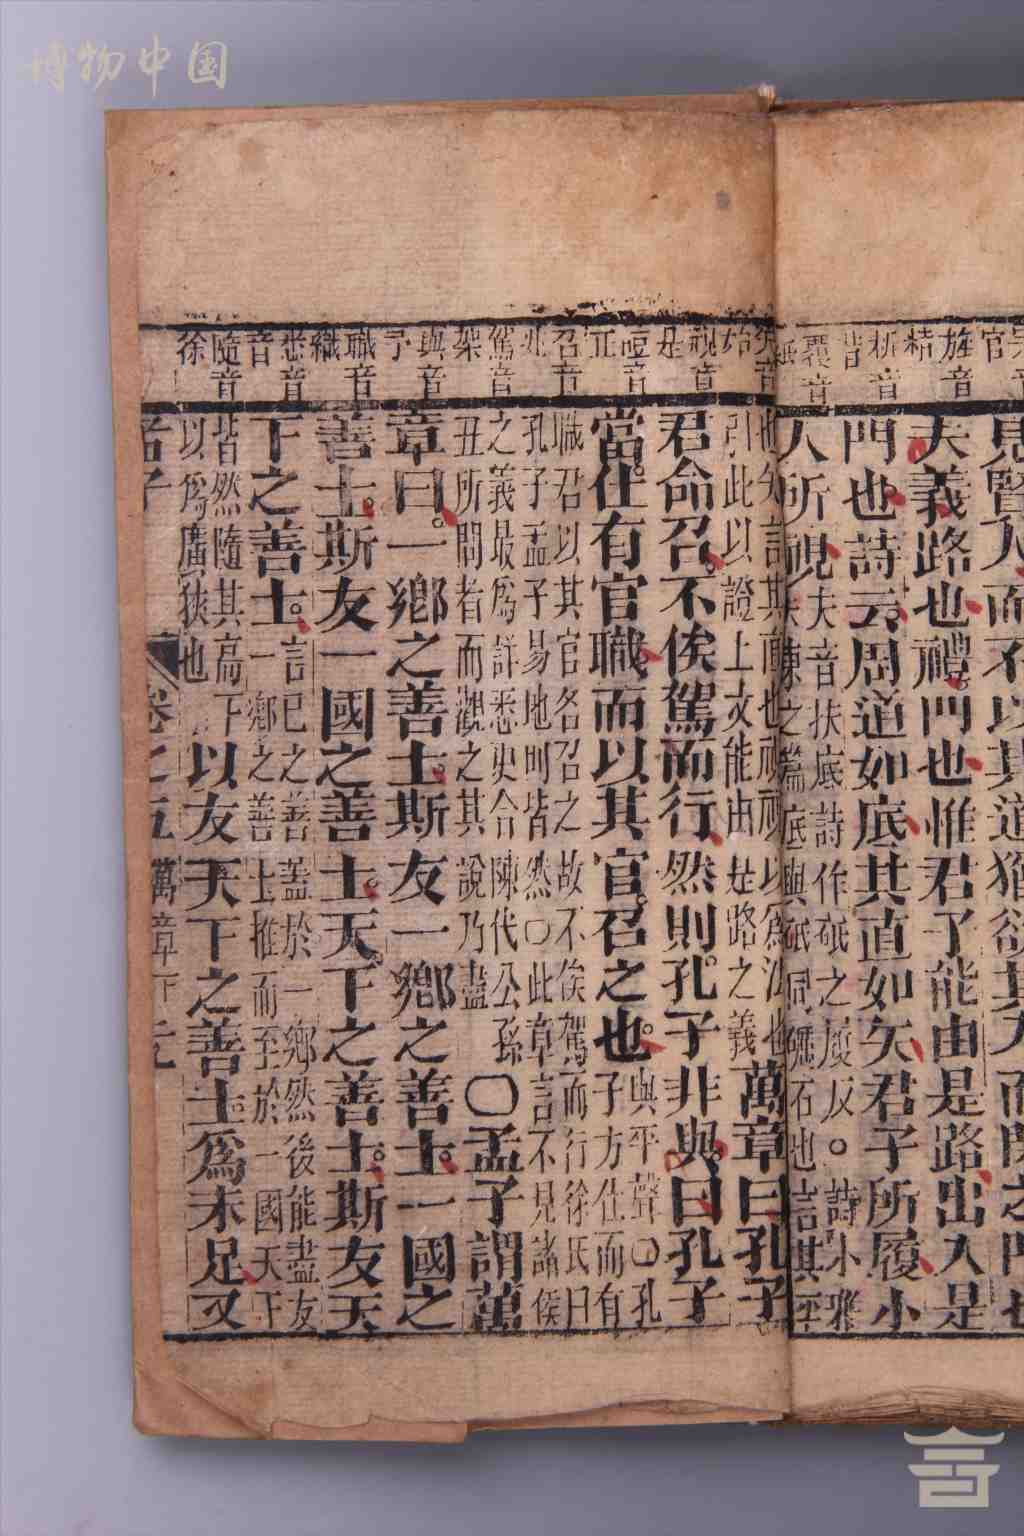 博物中国
見賢人而不以其道猶欲其入而閉之門也
夫義路也禮門也惟君子能由是路出入是
門也詩云周道如底其直如矢君子所履小
人所視
夫音扶底詩作砥之履反○詩小雅
大東之篇底與砥同礪石也言其平
也矢言其直也視視以為法也
引此以證上文能由是路之義
萬章曰孔子
君命召不俟駕而行然則孔子非與曰孔子
當仕有官職而以其官召之也
與平聲○孔
子方仕而有
職君以其官名召之故不俟駕而行徐氏曰
孔子孟子易地則皆然○此章言不見諸侯
之義最為詳悉更合陳代公孫
丑所問者而觀之其說乃盡
○孟子謂萬
章曰一鄉之善士斯友一鄉之善士一國之
善士斯友一國之善士天下之善士斯友天
下之善士
言己之善蓋於一鄉然後能盡友
一鄉之善士推而至於一國天下
皆然隨其高下
以為廣狹也
以友天下之善士為未足又
孟子
卷之五
萬章下
官
旌音
精
析音
昔
召音
駕音
架
與音
予
職音
織
音
隨音
徐